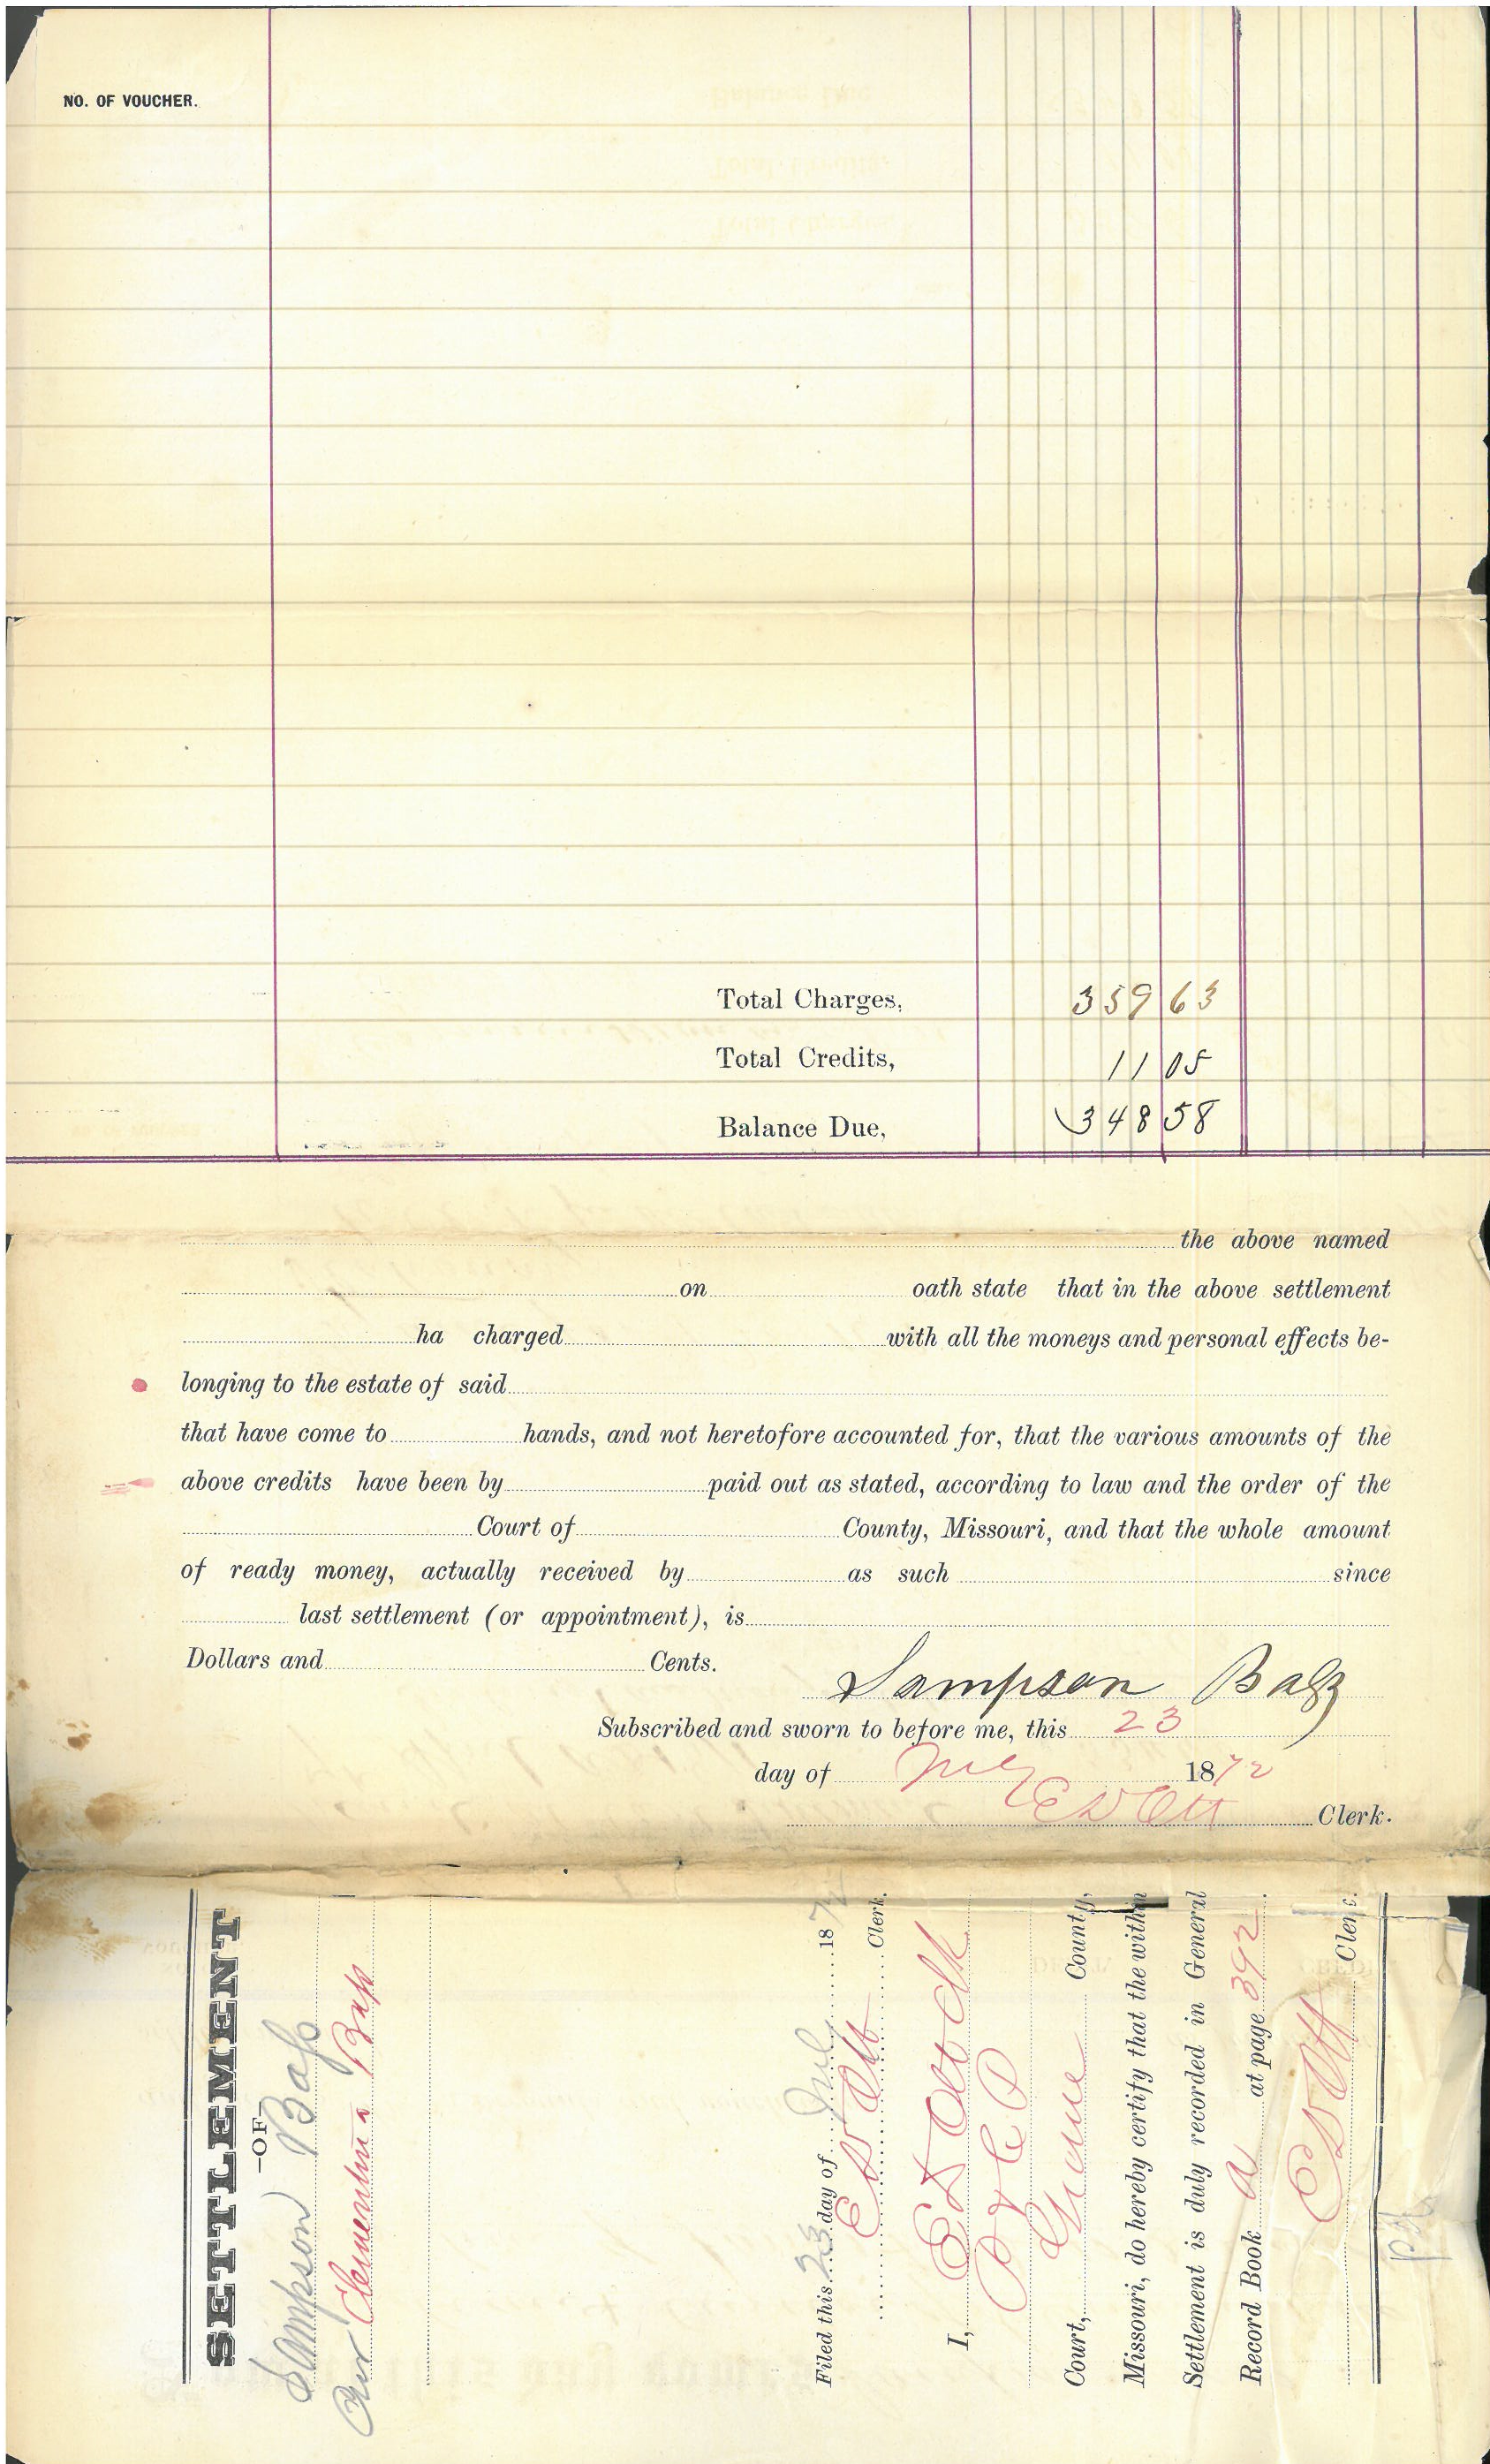 NO. OF VOUCHER.
Total Charges, 359 63
Total Credits, 11 05
Balance Due, 348 58
the above named
on oath state that in the above settlement
ha charged with all the moneys and personal effects be-
longing to the estate of said
that have come to hands, and not heretofore accounted for, that the various amounts of the
above credits have been by paid out as stated, according to law and the order of the
Court of County, Missouri, and that the whole amount
of ready money, actually received by as such since
last settlement (or appointment), is
Dollars and Cents.
Sampson Bass
Subscribed and sworn to before me, this 23
day of July 1872
E D Ott Clerk.
SETTLEMENT
—OF—
Sampson Bass
Cur Clementina Bass
Filed this 23 day of July 1872
E D Ott Clerk.
I, E D Ott Clk
P & C P
Court, Greene County,
Missouri, do hereby certify that the within
Settlement is duly recorded in General
Record Book A at page 392.
E D Ott Clerk.